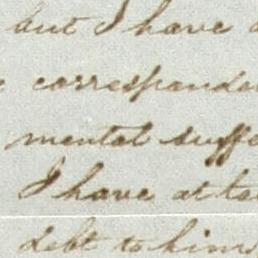 but I have
corresponda
mental suffe
I have at ta
debt to him